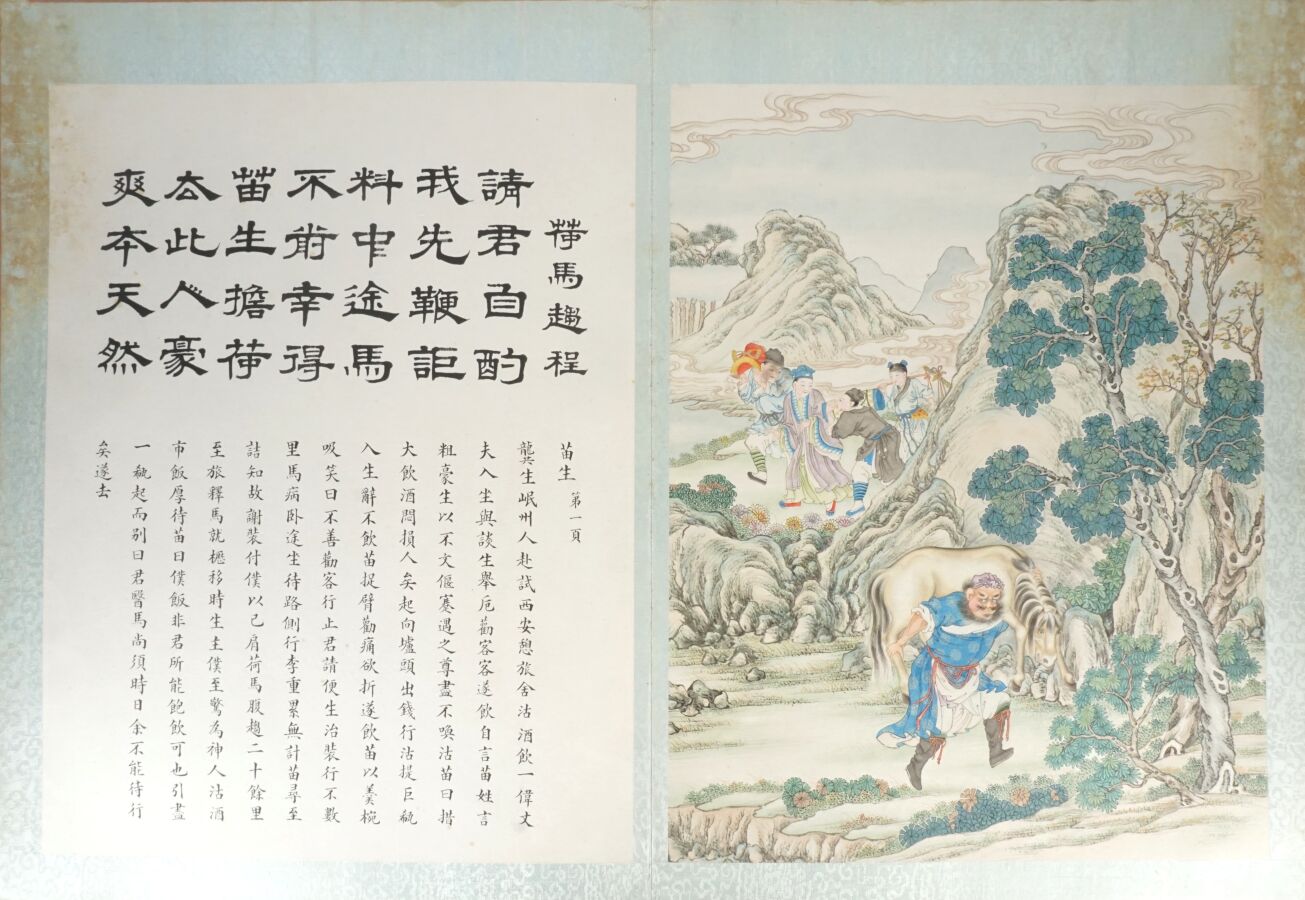 荷馬趨程
請君自酌
我先鞭詎
料中途馬
不前幸得
苗生擔荷
厺此人豪
爽本天然
苗生 第一頁
龔生岷州人赴試西安憩旅舍沽酒飲一偉丈
夫入坐與談生舉卮勸客客遂飲自言苗姓言
粗豪生以不文偃蹇遇之尊盡不喚沽苗曰措
大飲酒悶損人矣起向壚頭出錢行沽提巨瓻
入生辭不飲苗捉臂勸痛欲折遂飲苗以羹椀
吸笑曰不善勸客行止君請便生治裝行不數
里馬病卧途坐待路側行李重累無計苗尋至
詰知故謝裝付僕以己肩荷馬腹趨二十餘里
至旅釋馬就櫪移時生主僕至驚為神人沽酒
市飯厚待苗曰僕飯非君所能飽飲可也引盡
一瓻起而別曰君醫馬尚須時日余不能待行
矣遂去